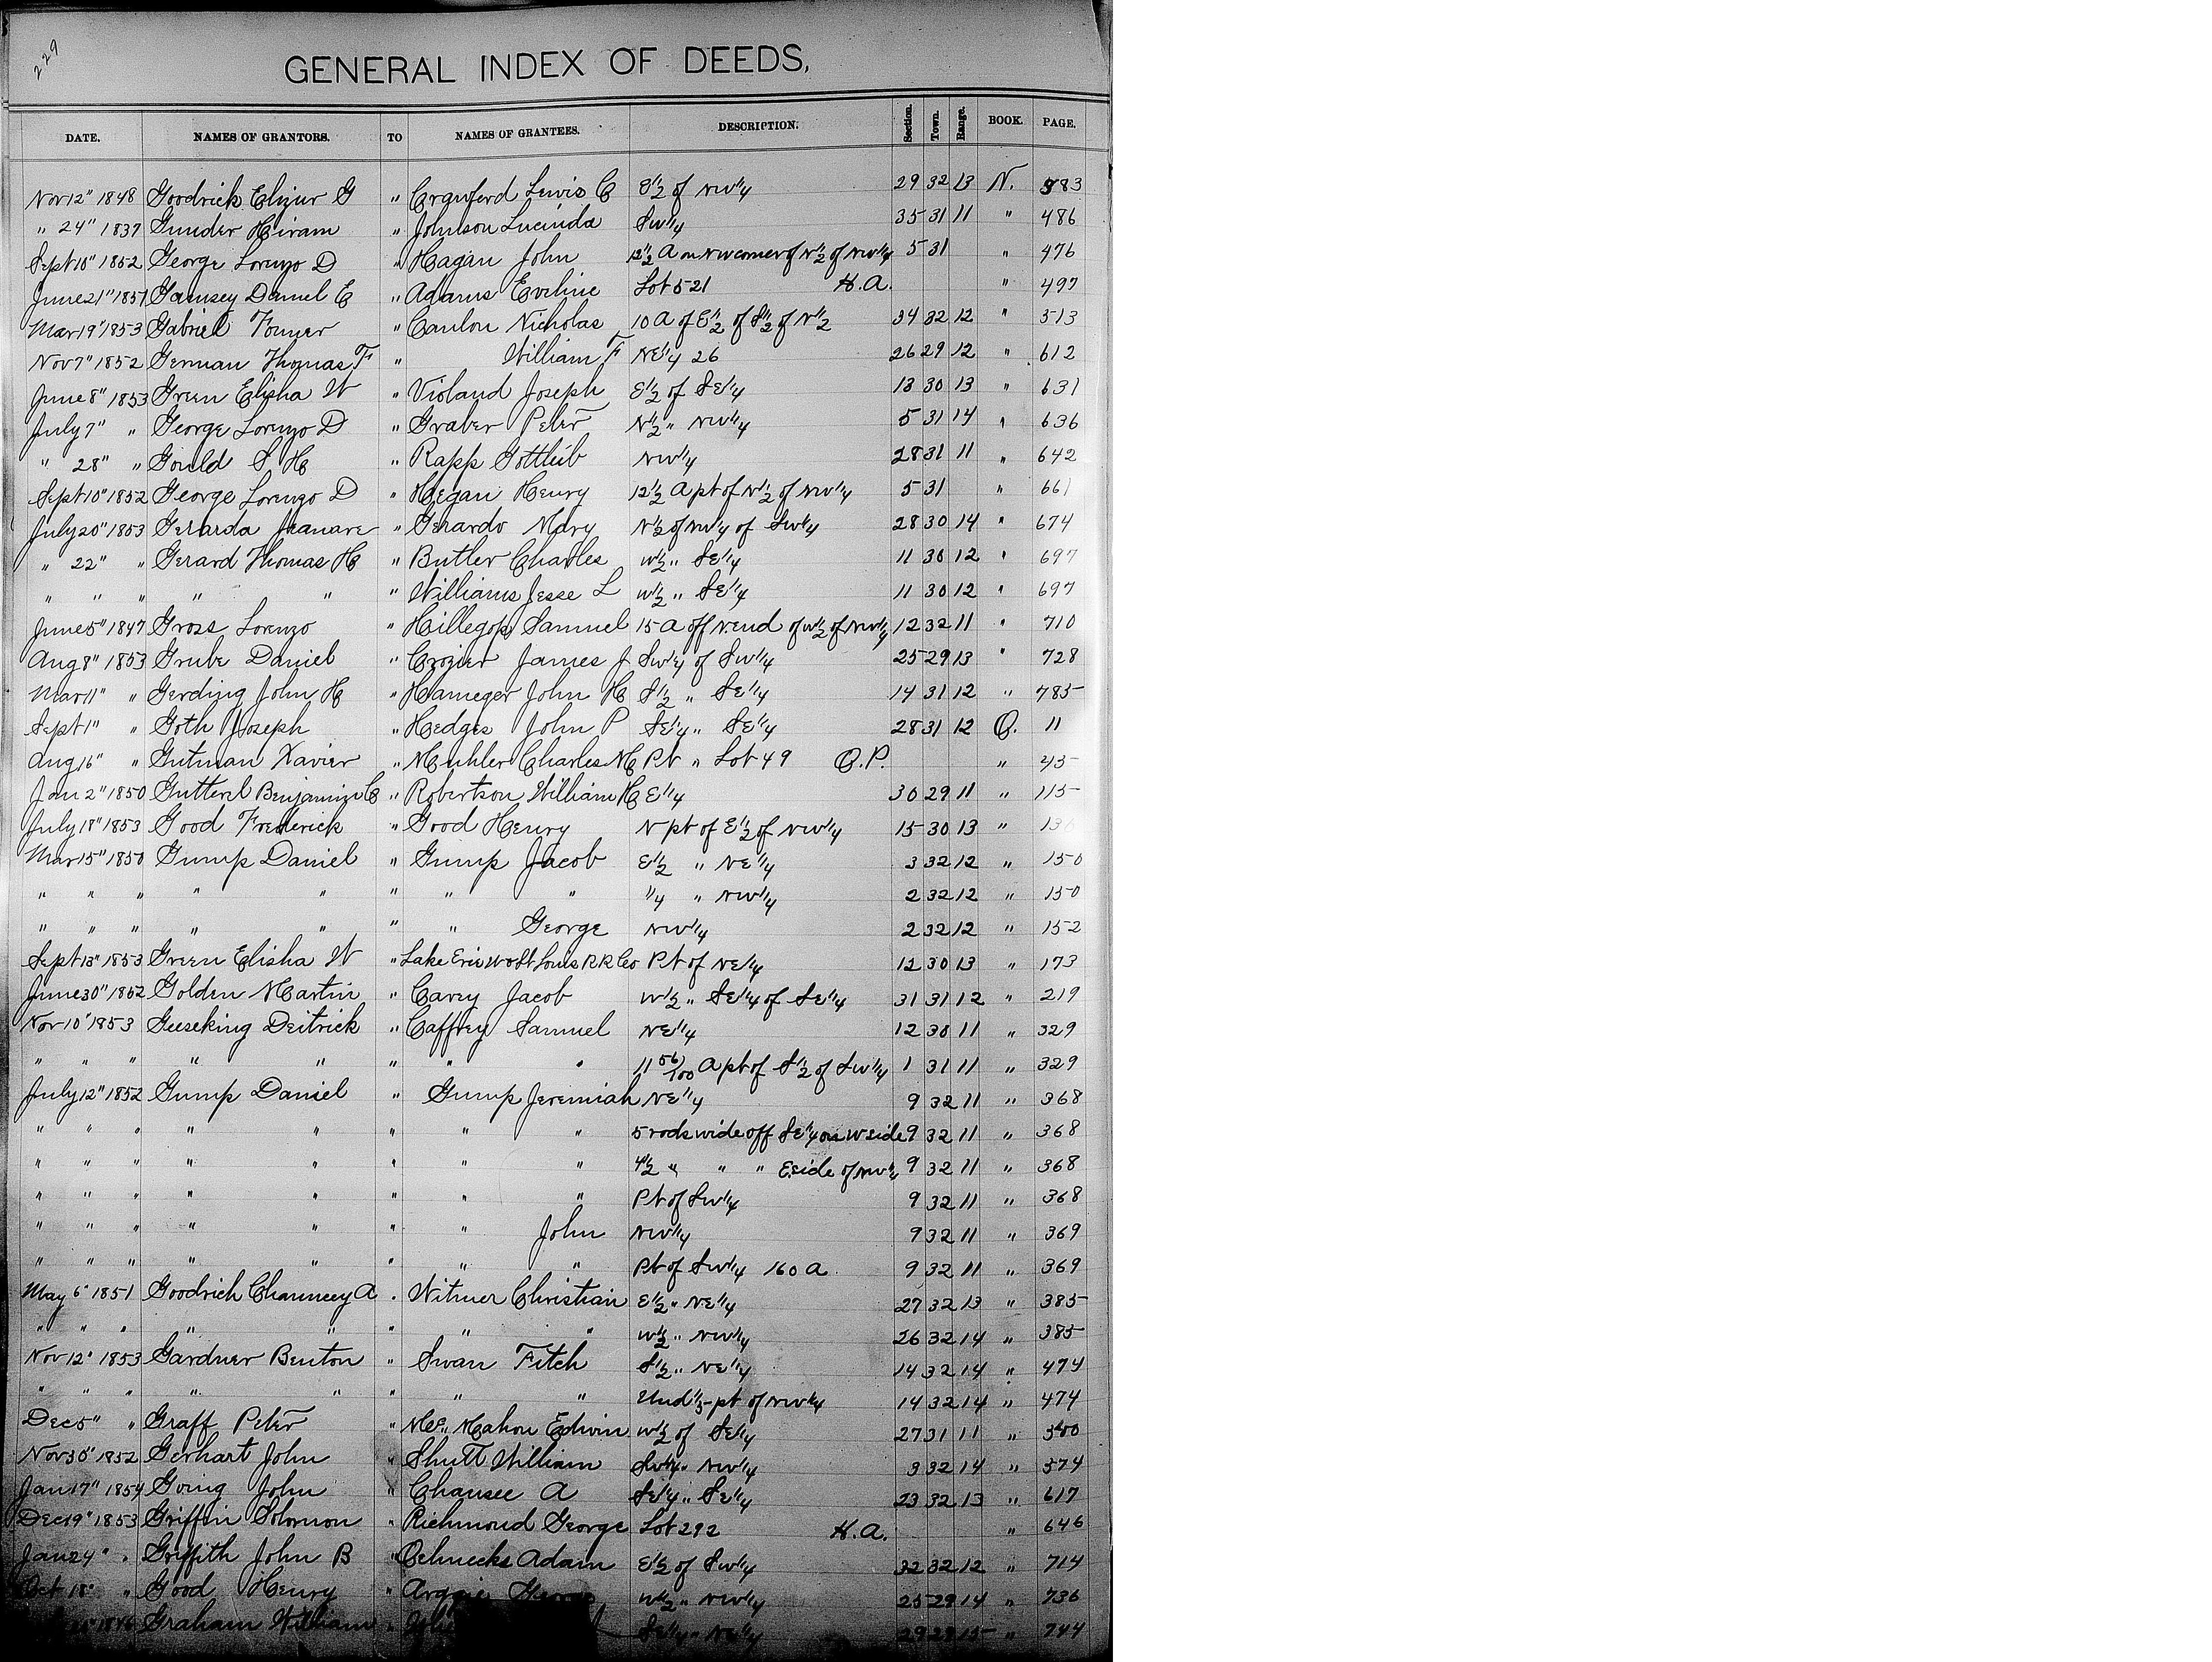 229
GENERAL INDEX OF DEEDS,
DATE. NAMES OF GRANTORS. TO NAMES OF GRANTEES. DESCRIPTION. Section. Town. Range. BOOK. PAGE.
Nov 12" 1848 Goodrick Elizur G " Crawford Lewis C E 1/2 of NW 1/4 29 32 13 N. 383
" 24" 1837 Gunder Hiram " Johnson Lucinda SW 1/4 35 31 11 " 486
Sept 10" 1852 George Lorenzo D " Hagan John 12 1/2 A on NW corner of N 1/2 of NW 1/4 5 31 " 476
June 21" 1851 Daniel E " Adams Eveline Lot 521 H.A. " 497
Mar 19" 1853 Gabriel " Canlon Nicholas 10 A of E 1/2 of S 1/2 of N 1/2 34 32 12 " 513
Nov 7" 1852 German Thomas F " William F NE 1/4 26 26 29 12 " 612
June 8" 1853 Green Elisha W " Violand Joseph E 1/2 of SE 1/4 13 30 13 " 631
July 7" " George Lorenzo D " Graber Peter N 1/2 " NW 1/4 5 31 14 " 636
" 28" " Gould S H " Rapp Gottlieb NW 1/4 28 31 11 " 642
Sept 10" 1852 George Lorenzo D " Hegan Henry 12 1/2 A pt of N 1/2 of NW 1/4 5 31 " 661
July 20" 1853 Gerarda " Gerardo Mary N 1/2 of NW 1/4 of SW 1/4 28 30 14 " 674
" 22" " Gerard Thomas H " Butler Charles W 1/2 " SE 1/4 11 30 12 " 697
" " " " " " Williams Jesse L W 1/2 " SE 1/4 11 30 12 " 697
June 5" 1847 Gross Lorenzo " Hillegass Samuel 15 A off N. end of W 1/2 of NW 1/4 12 32 11 " 710
Aug 8" 1853 Grube Daniel " Crozier James J SW 1/4 of SW 1/4 25 29 13 " 728
Mar 11" " Gerding John H " Hameger John H S 1/2 " SE 1/4 14 31 12 " 785
Sept 1" " Goth Joseph " Hedges John P SE 1/4 " SE 1/4 28 31 12 O. 11
Aug 16" " Gutman Xavier " Muhler Charles M Pt " Lot 49 O.P. " 45
Jan 2" 1850 Gutterd Benjamin C " Robertson William H E 1/4 30 29 11 " 115
July 18" 1853 Good Frederick " Good Henry N pt of E 1/2 of NW 1/4 15 30 13 " 136
Mar 15" 1850 Gump Daniel " Gump Jacob E 1/2 " NE 1/4 3 32 12 " 150
" " " " " " " " 1/4 " NW 1/4 2 32 12 " 150
" " " " " " " George NW 1/4 2 32 12 " 152
Sept 13" 1853 Green Elisha W " Lake Erie W & St Louis R R Co Pt of NE 1/4 12 30 13 " 173
June 30" 1852 Golden Martin " Carey Jacob W 1/2 " SE 1/4 of SE 1/4 31 31 12 " 219
Nov 10" 1853 Geeseking Deitrick " Caffrey Samuel NE 1/4 12 30 11 " 329
" " " " " " " " 11 56/100 A pt of S 1/2 of SW 1/4 1 31 11 " 329
July 12" 1852 Gump Daniel " Gump Jeremiah NE 1/4 9 32 11 " 368
" " " " " " " " 5 rods wide off SE 1/4 on W side 9 32 11 " 368
" " " " " " " " 4 1/2 " " " E side of NW 1/4 9 32 11 " 368
" " " " " " " " Pt of SW 1/4 9 32 11 " 368
" " " " " " " John NW 1/4 9 32 11 " 369
" " " " " " " " Pt of SW 1/4 160 A 9 32 11 " 369
May 6" 1851 Goodrich Chauncey A " Witmer Christian E 1/2 " NE 1/4 27 32 13 " 385
" " " " " " " " W 1/2 " NW 1/4 26 32 14 " 385
Nov 12" 1853 Gardner Benton " Swan Fitch S 1/2 " NE 1/4 14 32 14 " 474
" " " " " " " " Und 1/3 pt of NW 1/4 14 32 14 " 474
Dec 5" " Graff Peter " Mc Mahon Edwin W 1/2 of SE 1/4 27 31 11 " 500
Nov 30" 1852 Gerhart John " Shutt William SW 1/4 " NW 1/4 3 32 14 " 574
Jan 17" 1854 Going John " Chausee A SE 1/4 " SE 1/4 23 32 13 " 617
Dec 19" 1853 Griffin Solomon " Richmond George Lot 292 H.A. " 646
Jan 24" " Griffith John B " Adam E 1/2 of SW 1/4 32 32 12 " 714
Oct 18" " Good Henry " W 1/2 " NW 1/4 25 29 14 " 736
1846 Graham William " SE 1/4 " NE 1/4 29 29 15 " 744